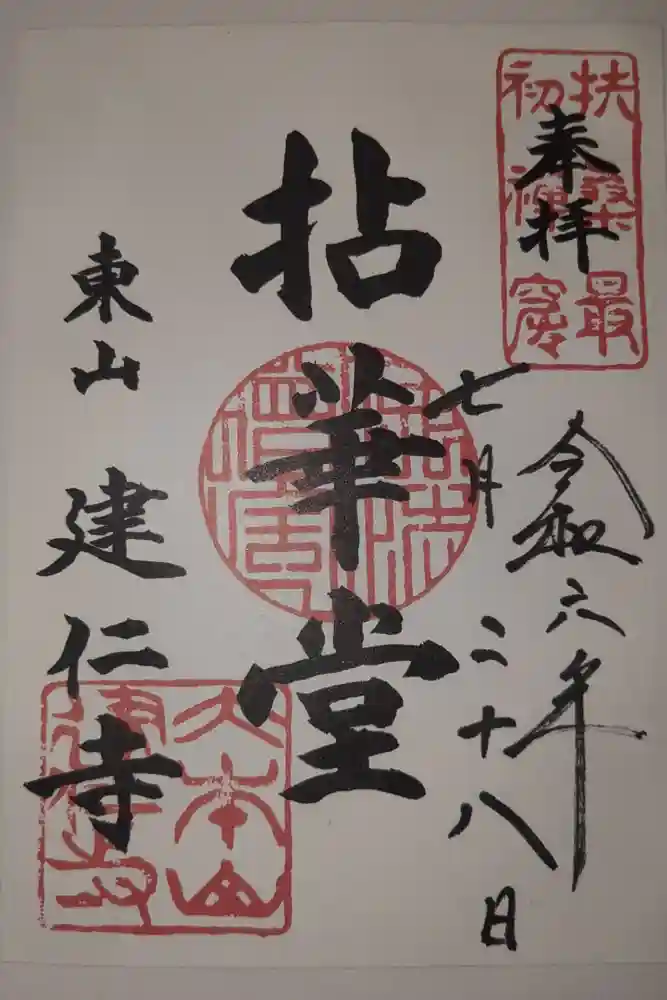 奉拝
扶桑最
初禅窟
令和六年
七月二十八日
拈華堂
東山 建仁寺
大本山
建仁寺